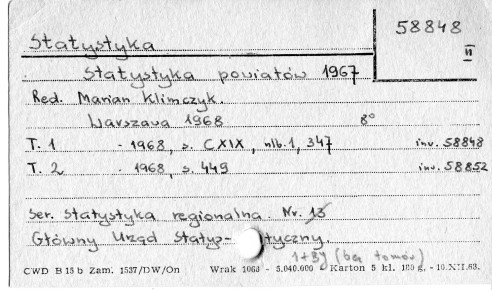 58848
II
Statystyka
Statystyka powiatów 1967
Red. Marian Klimczyk.
Warszawa 1968 8°
T. 1 - 1968, s. CXIX, nlb. 1, 347 inw. 58848
T. 2 - 1968, s. 449 inw. 58852
Ser. Statystyka regionalna. Nr. 13
Główny Urząd Statys- tyczny.
(bez tomów)
CWD B 15 b Zam. 1537/DW/On Wrak 1063 - 5.040.000 Karton 5 kl. 180 g. - 10.XII.63.